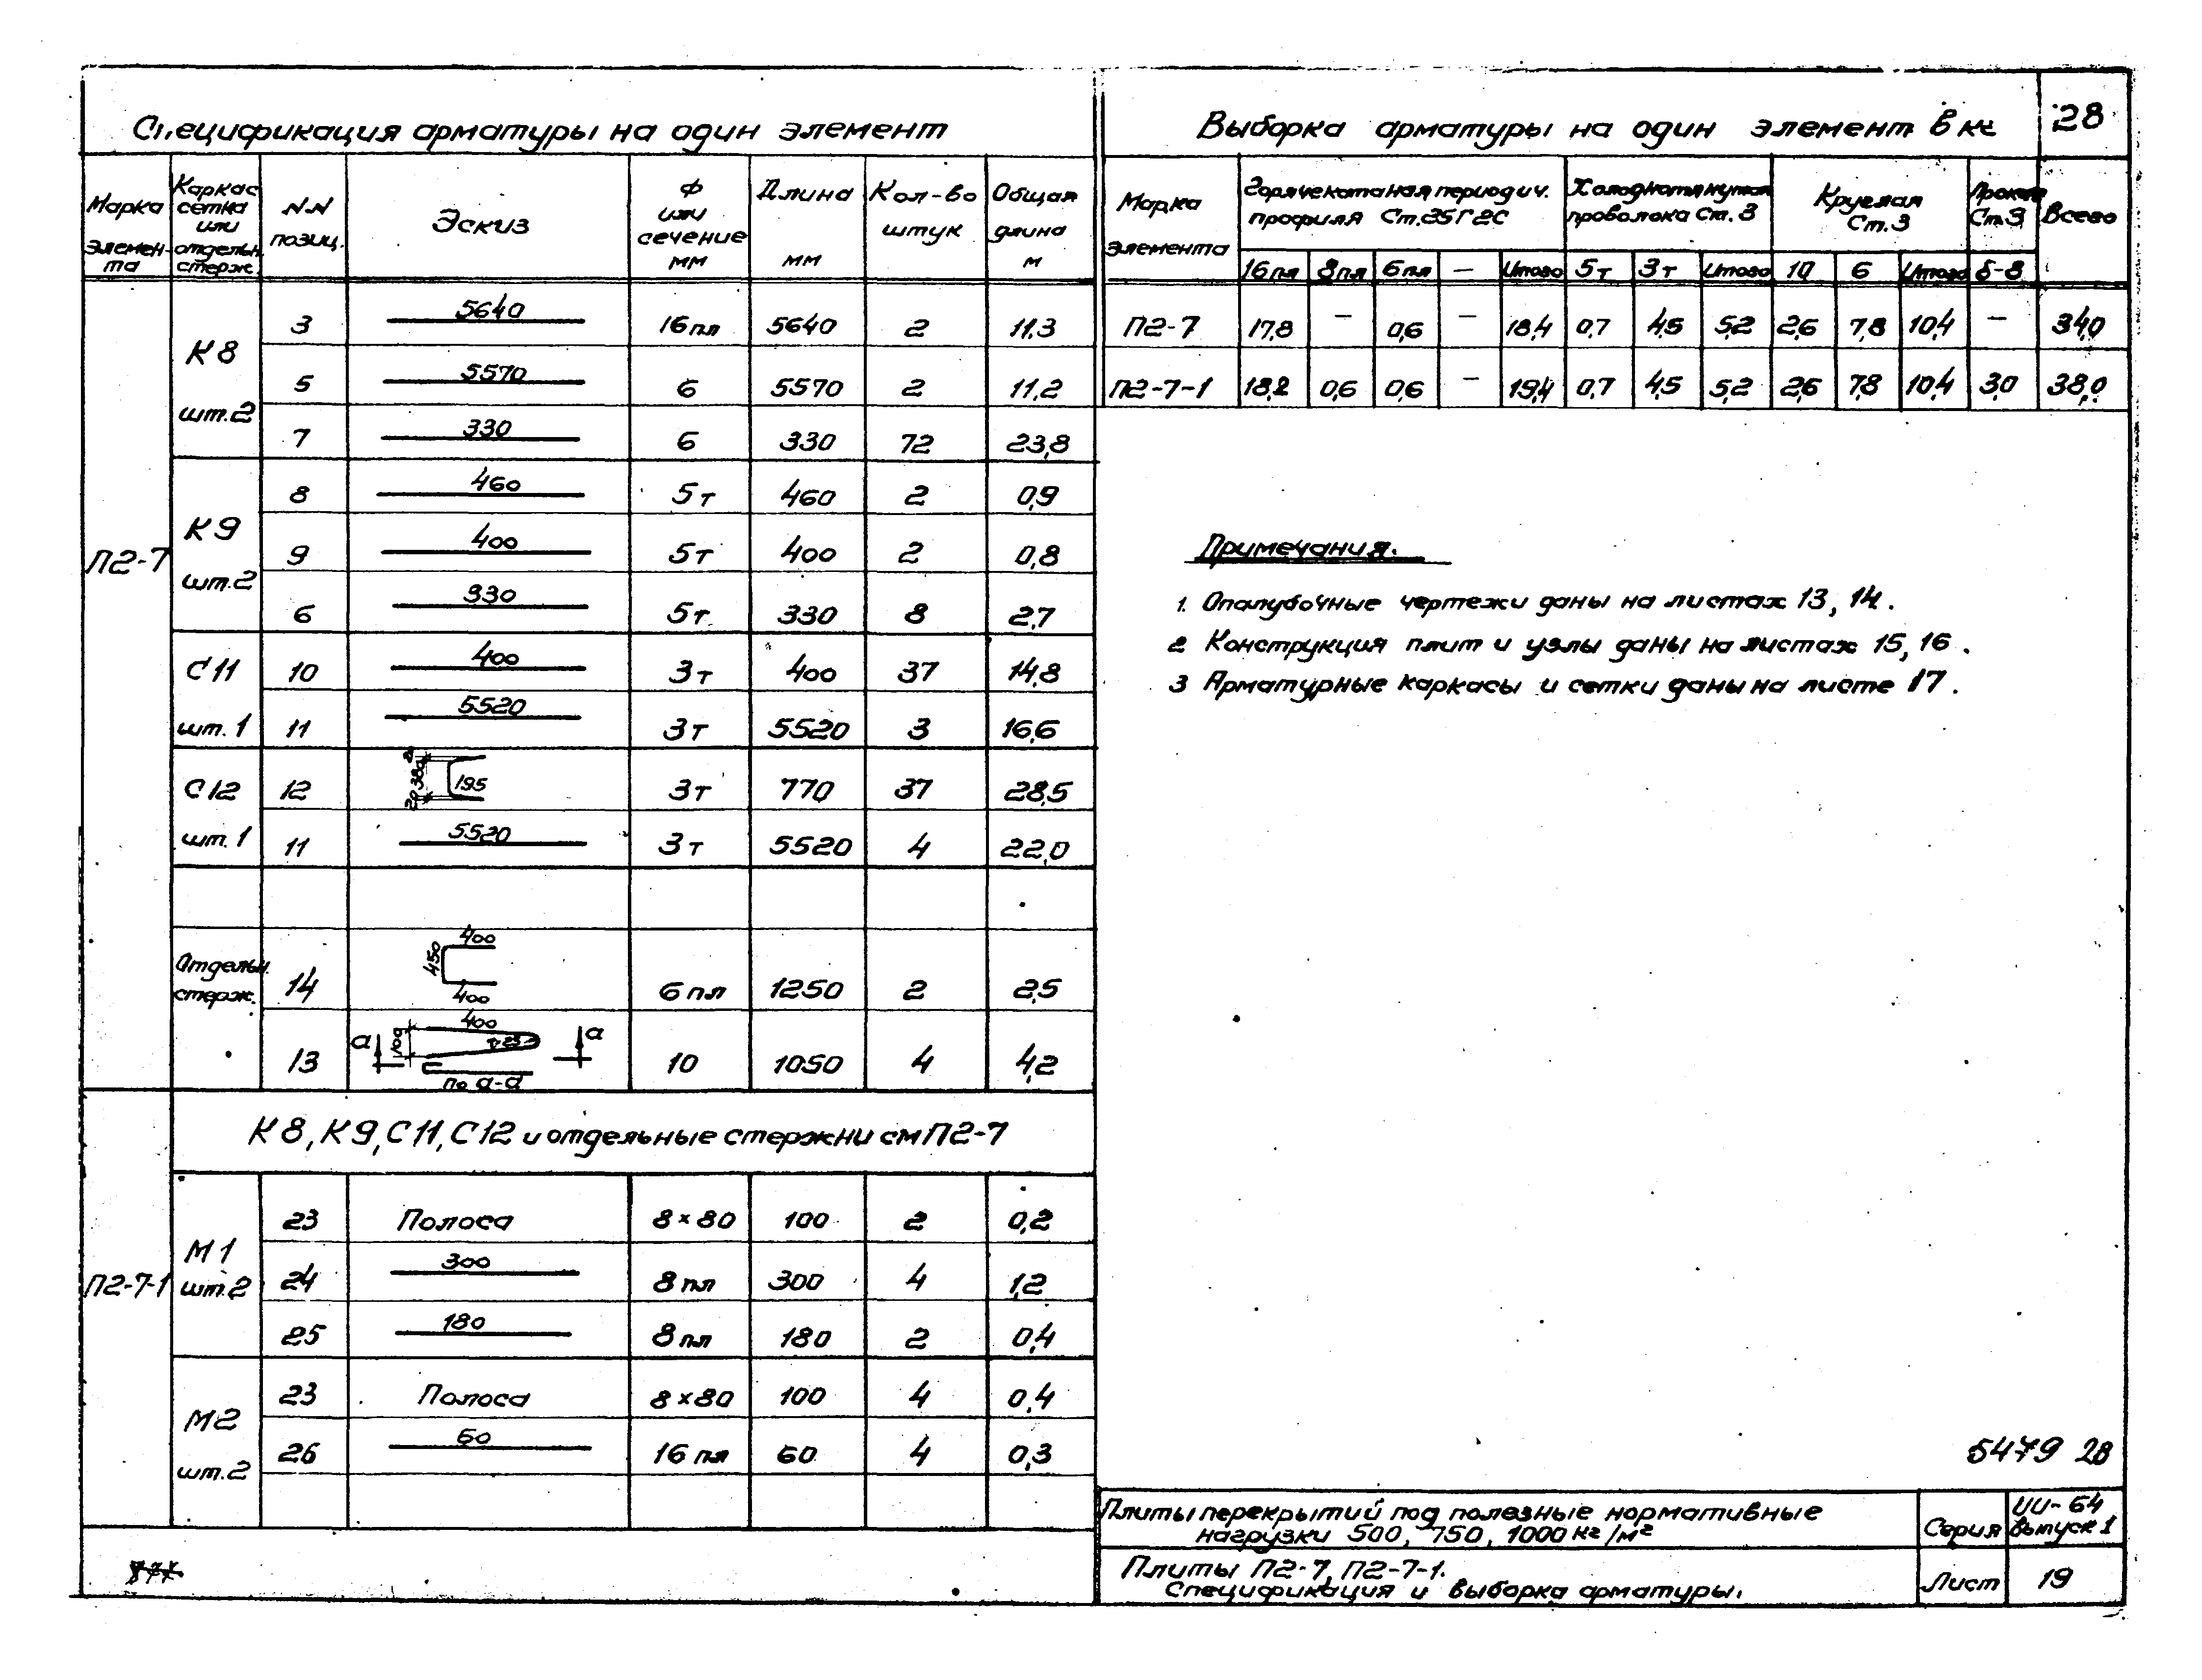 Спецификация арматуры на один элемент
Марка элемен-та | Каркас сетка или отдельн. стерж. | NN позиц. | Эскиз | Ф или сечение мм | Длина мм | Кол-во штук | Общая длина м
П2-7
К8 шт.2
3 | 5640 | 16пл | 5640 | 2 | 11,3
5 | 5570 | 6 | 5570 | 2 | 11,2
7 | 330 | 6 | 330 | 72 | 23,8
К9 шт.2
8 | 460 | 5т | 460 | 2 | 0,9
9 | 400 | 5т | 400 | 2 | 0,8
6 | 330 | 5т | 330 | 8 | 2,7
С11 шт.1
10 | 400 | 3т | 400 | 37 | 14,8
11 | 5520 | 3т | 5520 | 3 | 16,6
С12 шт.1
12 | 20 380 195 | 3т | 770 | 37 | 28,5
11 | 5520 | 3т | 5520 | 4 | 22,0
Отдельн. стерж.
14 | 400 450 400 | 6пл | 1250 | 2 | 2,5
13 | а 100 400 а по а-а | 10 | 1050 | 4 | 4,2
П2-7-1
К8, К9, С11, С12 и отдельные стержни см П2-7
М1 шт.2
23 | Полоса | 8×80 | 100 | 2 | 0,2
24 | 300 | 8пл | 300 | 4 | 1,2
25 | 180 | 8пл | 180 | 2 | 0,4
М2 шт.2
23 | Полоса | 8×80 | 100 | 4 | 0,4
26 | 60 | 16пл | 60 | 4 | 0,3
Выборка арматуры на один элемент в кг
28
Марка элемента | Горячекатаная периодич. профиля Ст.25Г2С | Холоднотянутая проволока Ст.3 | Круглая Ст.3 | Прокат Ст.3 | Всего
16пл | 8пл | 6пл | — | Итого | 5т | 3т | Итого | 10 | 6 | Итого | δ-8
П2-7 | 17,8 | — | 0,6 | — | 18,4 | 0,7 | 4,5 | 5,2 | 2,6 | 7,8 | 10,4 | — | 34,0
П2-7-1 | 18,2 | 0,6 | 0,6 | — | 19,4 | 0,7 | 4,5 | 5,2 | 2,6 | 7,8 | 10,4 | 3,0 | 38,0
Примечания.
1. Опалубочные чертежи даны на листах 13, 14.
2 Конструкция плит и узлы даны на листах 15, 16.
3 Арматурные каркасы и сетки даны на листе 17.
5479 28
Плиты перекрытий под полезные нормативные
нагрузки 500, 750, 1000 кг/м²
Серия
ИИ-64
Выпуск 1
Плиты П2-7, П2-7-1.
Спецификация и выборка арматуры.
Лист
19